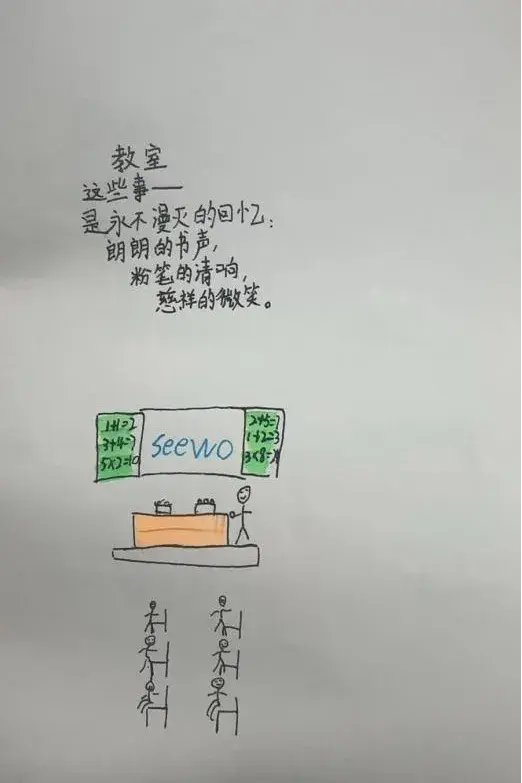 教室
这些事——
是永不漫灭的回忆:
朗朗的书声,
粉笔的清响,
慈祥的微笑。
1+1=2
3+4=7
5×2=10
seewo
2+5=7
1+2=3
3×8=